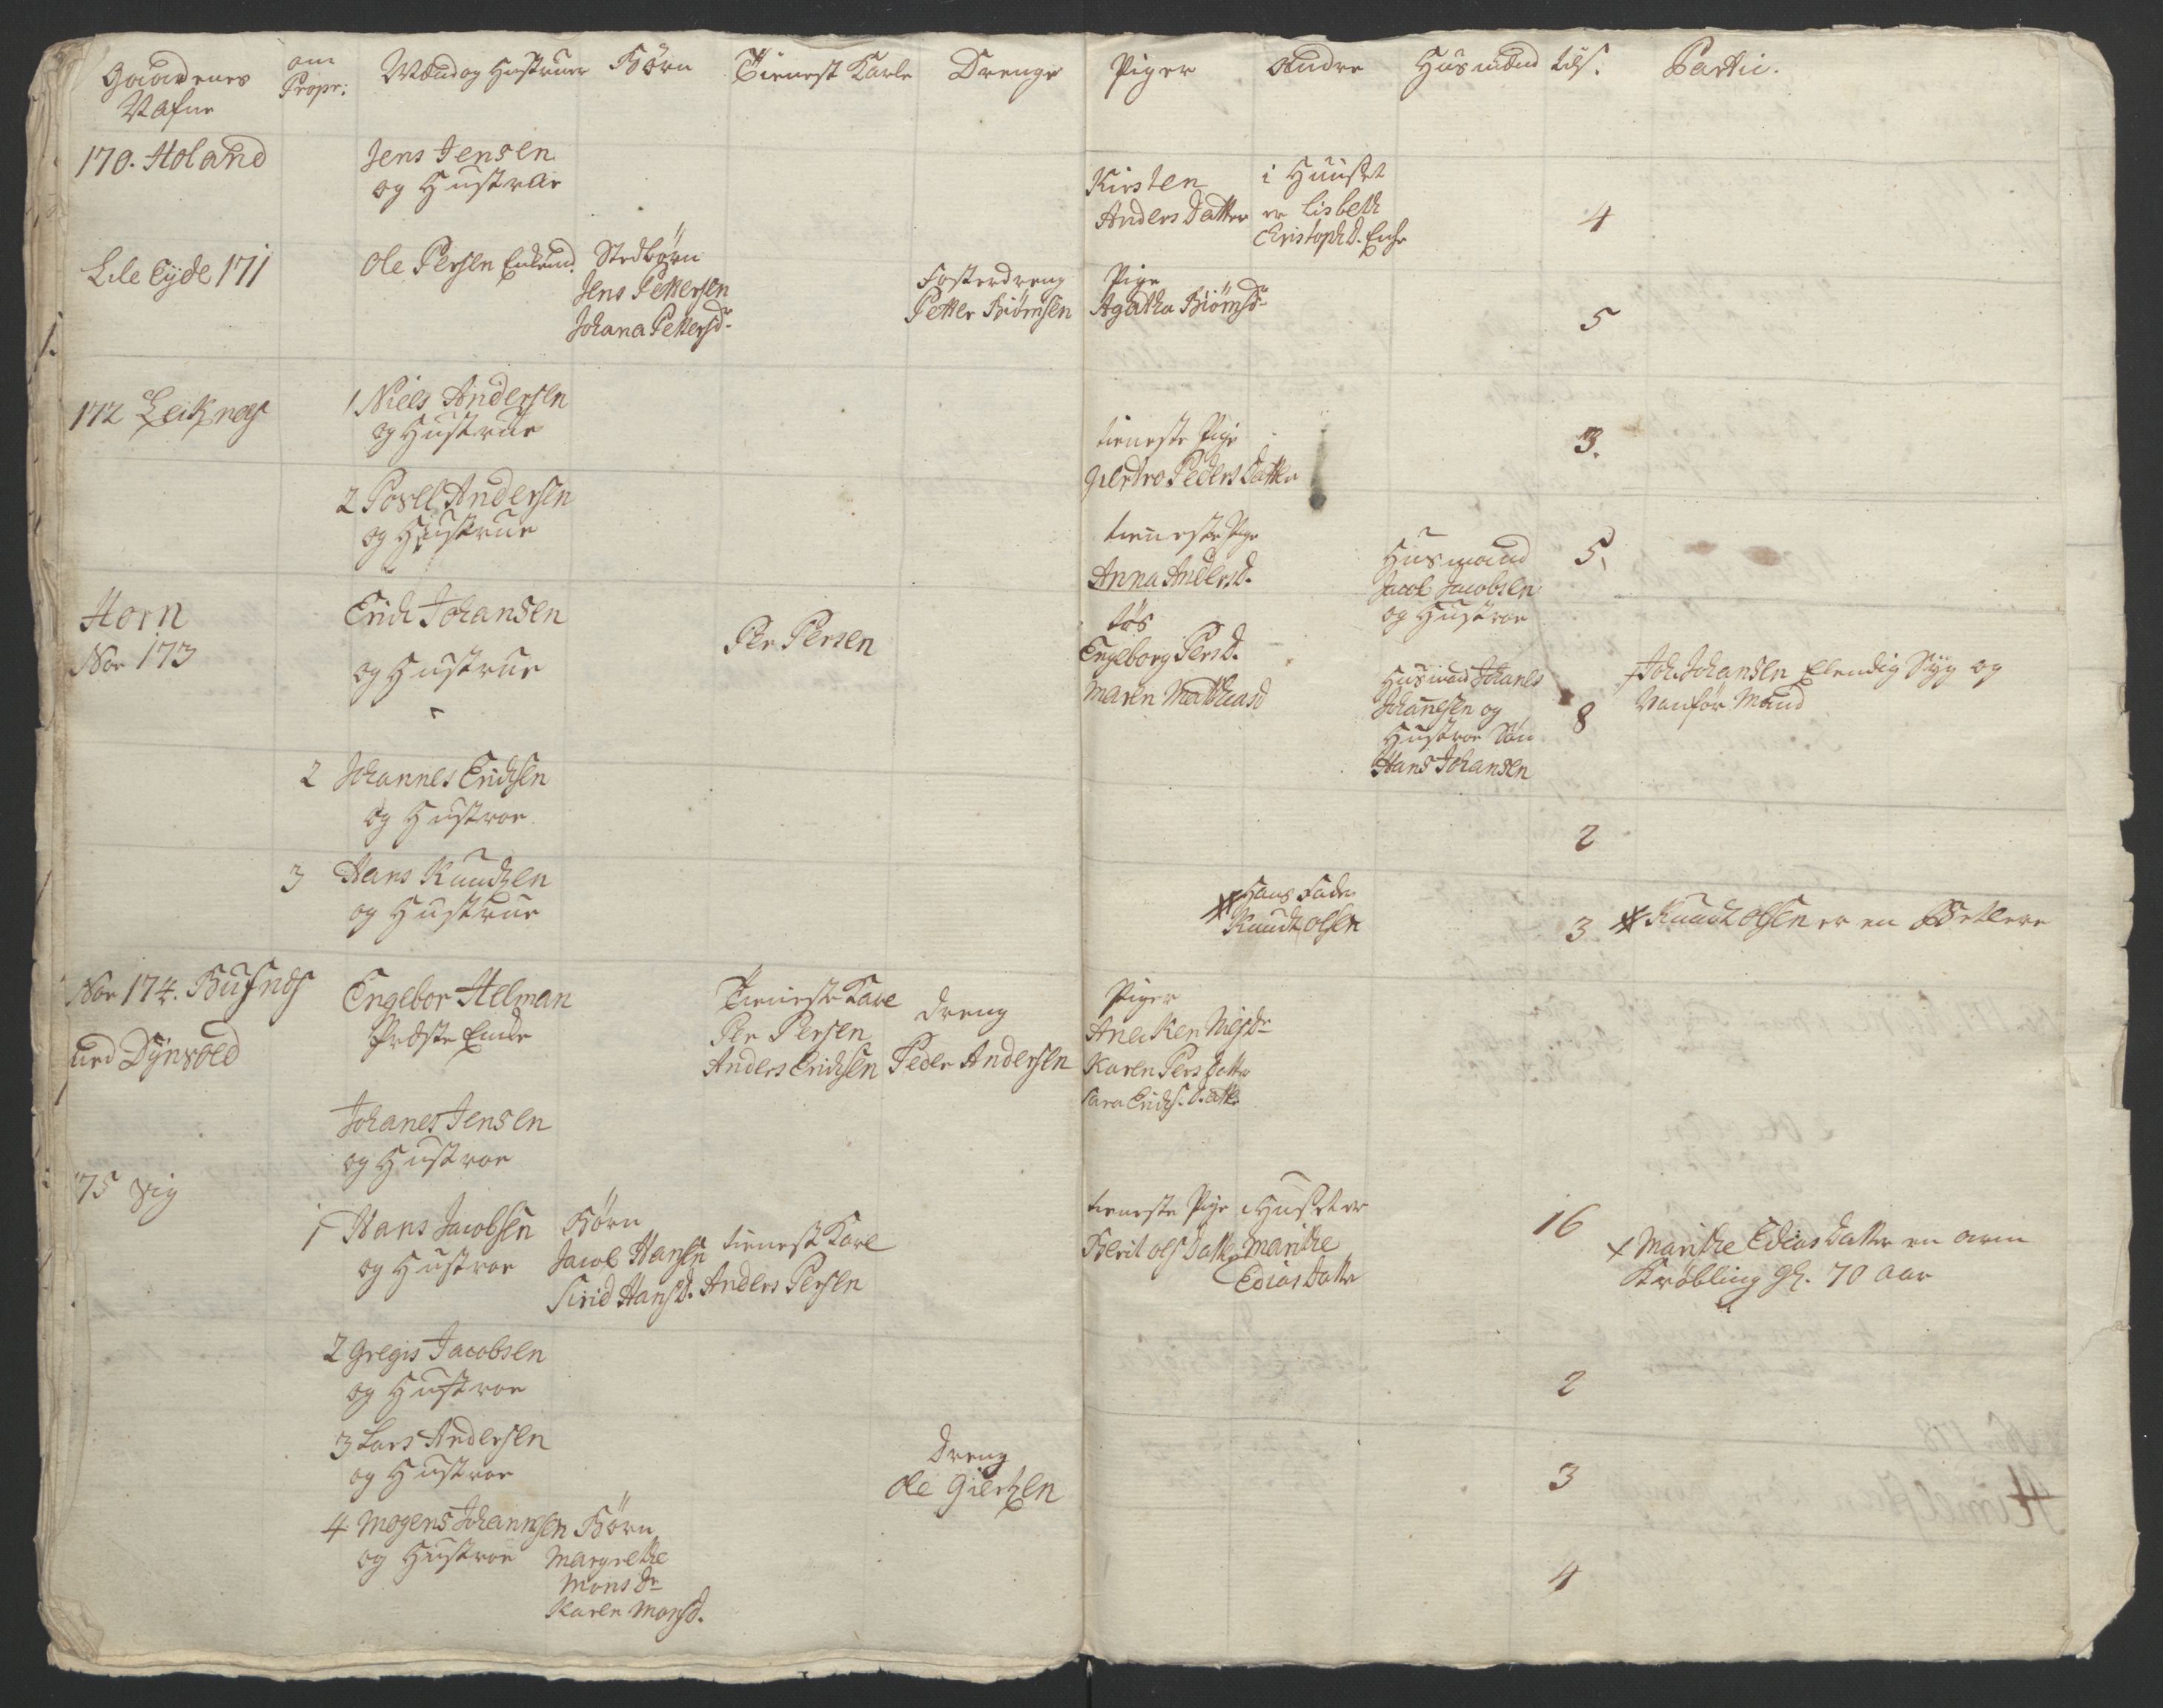 Gaardenes Nafne
om Propr:
Mænd og Hustruer
Börn
Tienest Karle
Drenge
Piger
Andre
Husmænd
Partic.
170. Holand
Jens Jensen
og Hustrue
Kirsten
Anders Datter
i Huuset
er Lisbeth
Christoph D. Enke
4
Lile Eyde 171
Ole Persen Enkemd.
Stedbörn
Jens Pettersen
Johana Pettersdr
Fosterdreng
Petter Biörnsen
Pige
Agatha Biörnsdr
5
172 Leiknes
1 Niels Andersen
og Hustrue
tieneste Pige
Giertro Peders Datter
3.
2 Povel Andersen
og Hustrue
tieneste Pige
Anna Andersd.
Husmand
Jacob Jacobsen
og Hustroe
5
Horn
Nor 173
Erich Johansen
og Hustrue
Per Persen
tös
Engeborg Persd.
Maren Matthiasd
Husmand Johanes
Johannesen og
Hustroe Sön
Hans Johansen
8
Joh. Johansen Elendig Syg og
Vanför Mand
2 Johannes Erichsen
og Hustroe
2
3 Hans Knudtzen
og Hustrue
Hans Fader
Knudt Olsen
3
Knudt Olsen er en Betlere
Nor 174. Husnes
ved Dynvold
Engebor Helman
Præste Enke
Tieneste Karl
Per Persen
Anders Erichsen
Dreng
Peder Andersen
Piger
Anecken Nilsdr
Karen Pers Datter
Sara Erichs. Datter
Johanes Jensen
og Hustroe
75 Vig
1 Hans Jacobsen
og Hustroe
Börn
Jacob Hansen
Sirid Hansd.
tienest Karl
Anders Persen
tieneste Pige
Berit Ols Datter
i Huset er
Marithe
Edias Datter
16
x Marithe Edias Datter en arm
Kröbling gl. 70 aar
2 Gregis Jacobsen
og Hustroe
2
3 Lars Andersen
og Hustroe
Dreng
Ole Giertzen
3
4. Mogens Johannesen
og Hustroe
Börn
Margrethe
Monsdr
Karen Monsd.
4